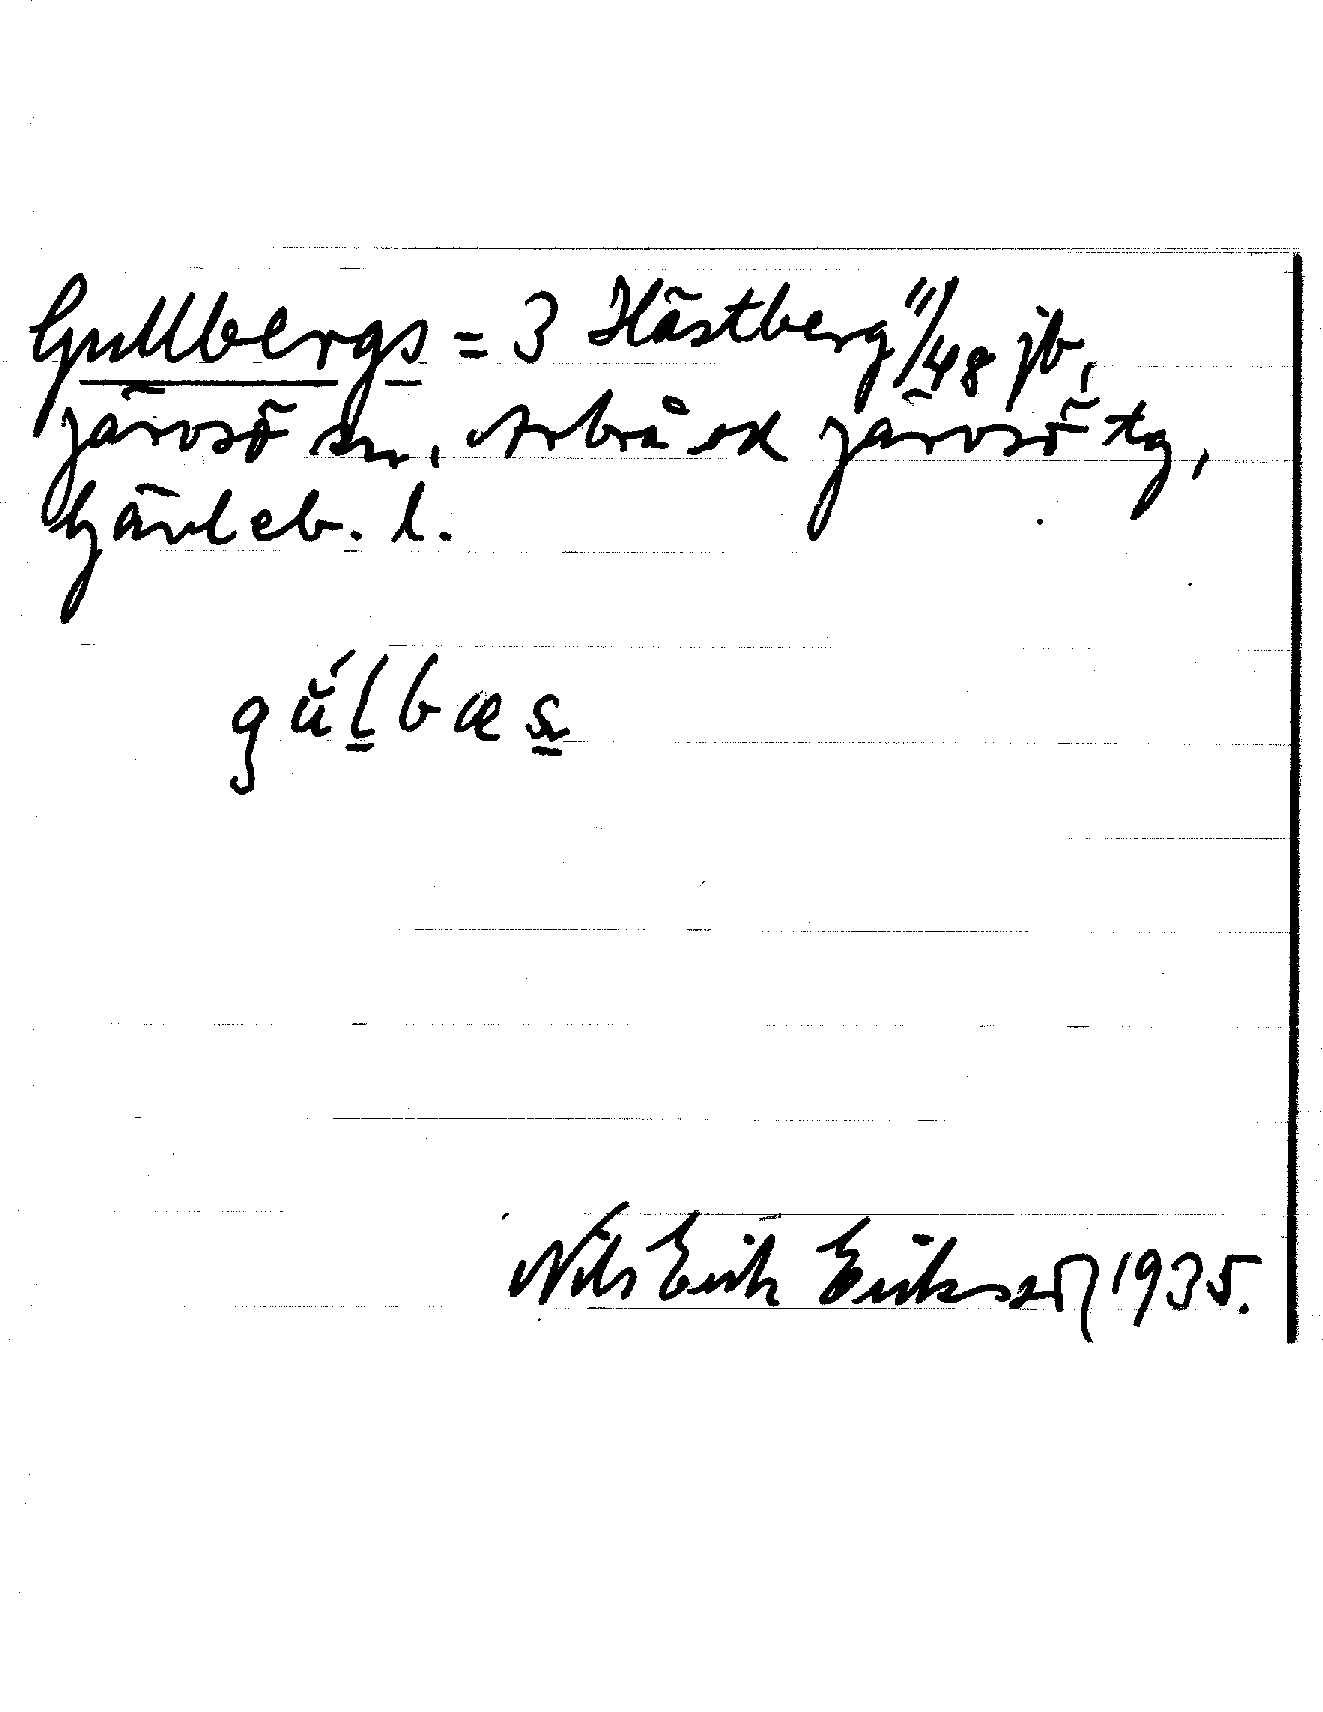 Gullbergs = 3 Hästberg 11/48 jb,
Järvsö sn, Arbrå ok Järvsö tg,
Gävleb. l.
gŭ́lbæs
Nils Erik Eriksson 1935.